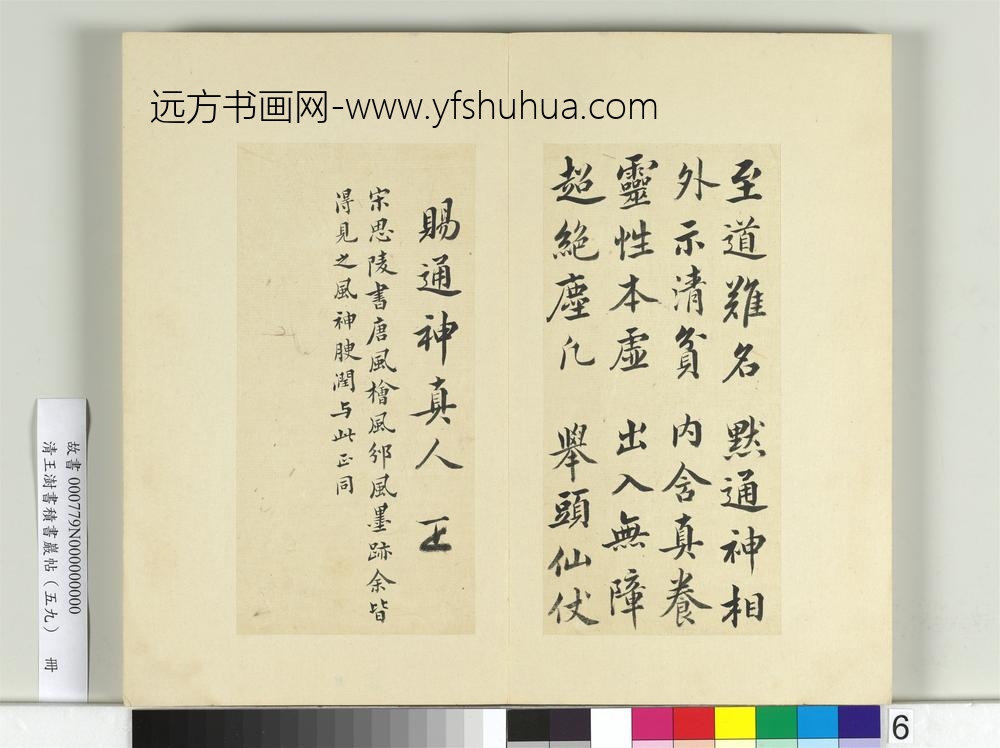 远方书画网-www.yfshuhua.com
至道難名 默通神相
外示清貧 内含真養
靈性本虛 出入無障
超絶塵凡 舉頭仙仗
賜通神真人
宋思陵書唐風檜風邠風墨跡余皆
得見之風神腴潤与此正同
故書 000779N000000000
清王澍書積書巖帖(五九) 冊
6